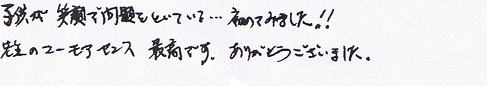 子供が 笑顔で問題をといている… 初めてみました!!
先生のユーモアセンス 最高です。ありがとうございました。